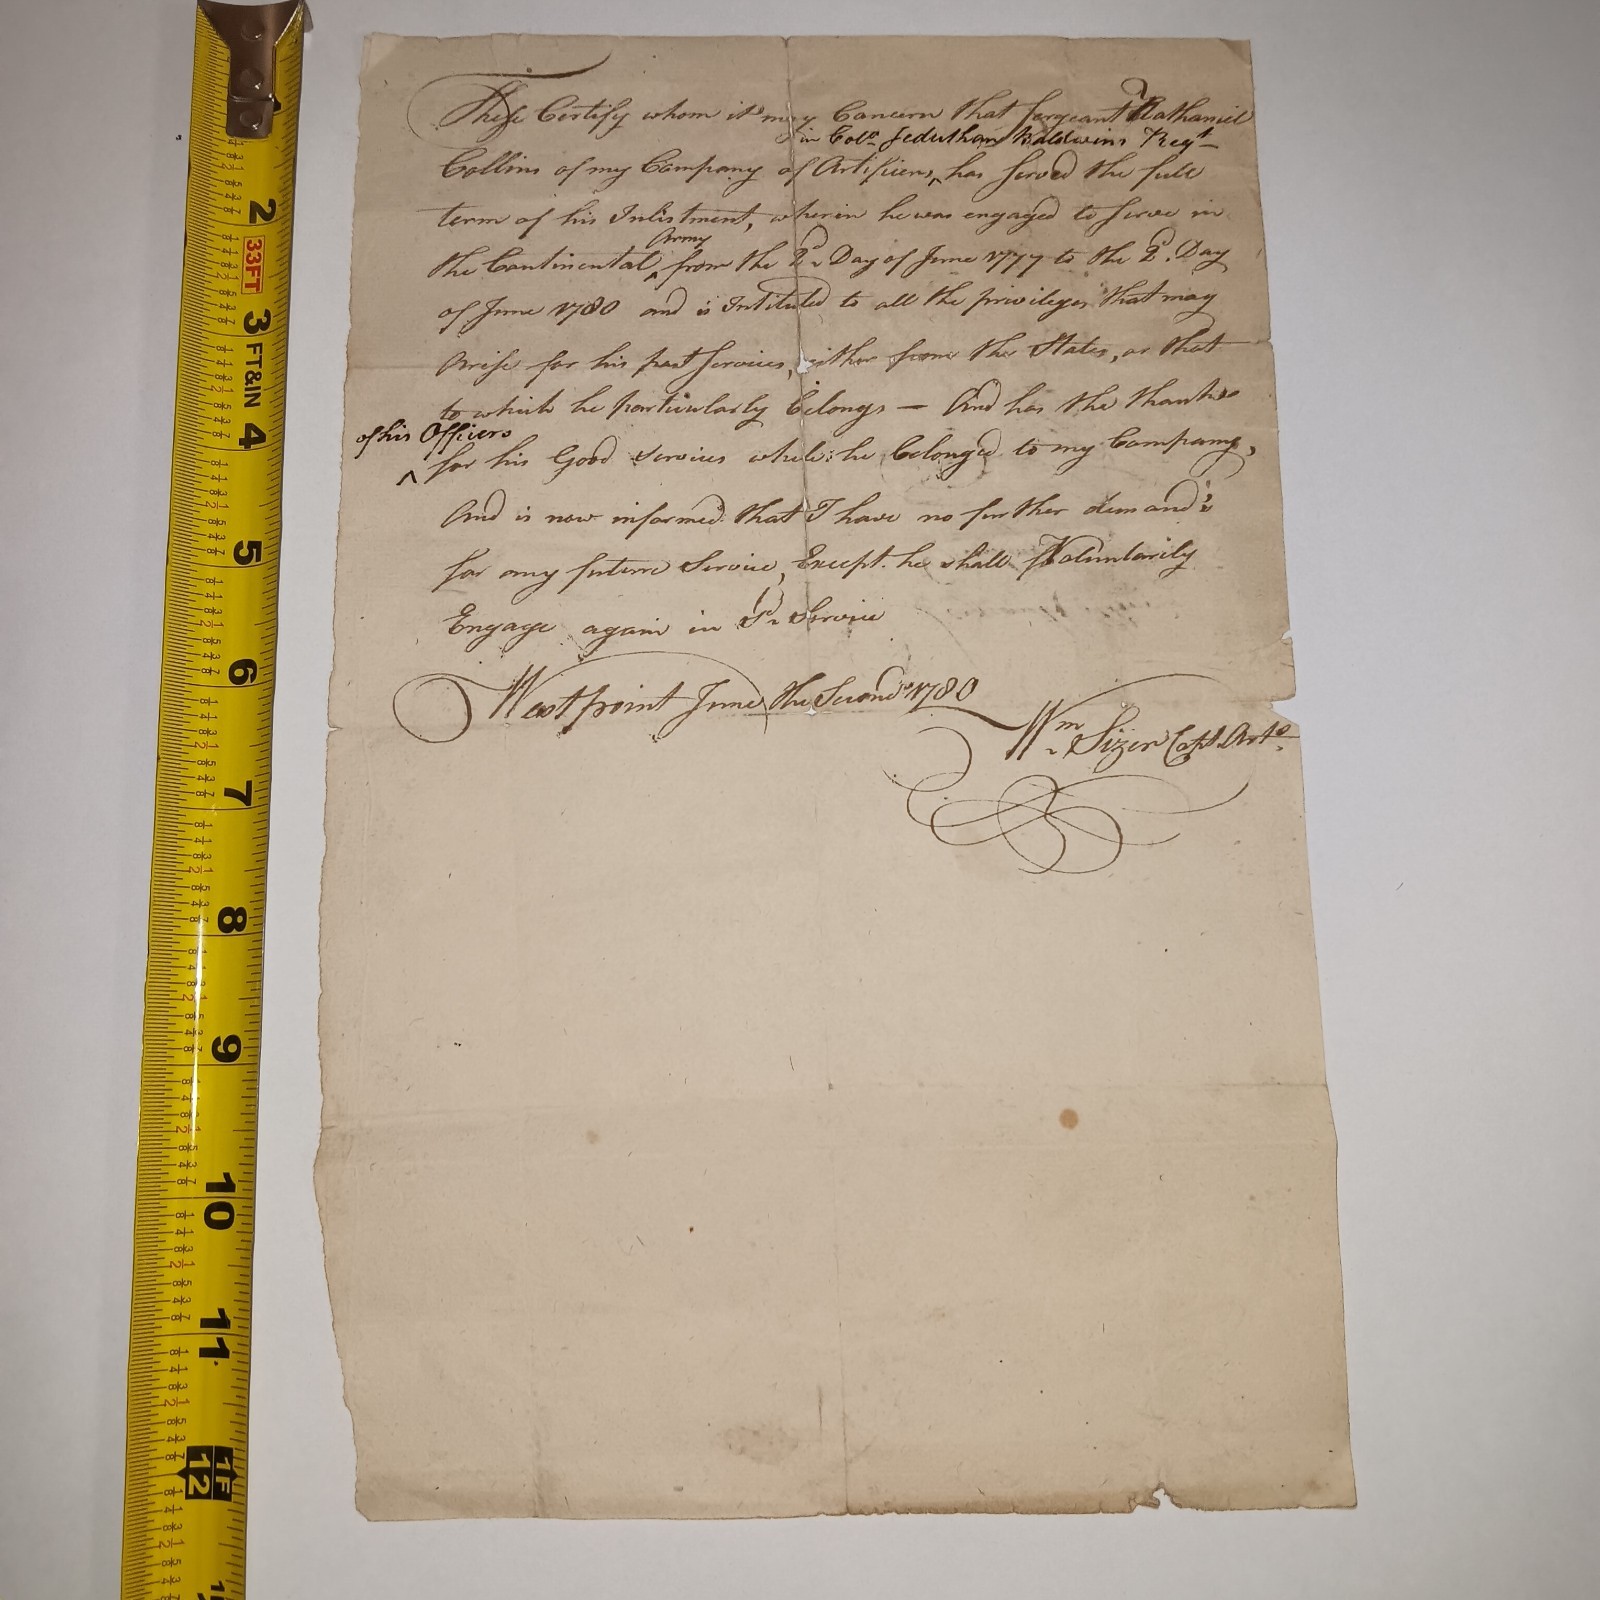 These Certify whom it may Concern that Sergeant Nathaniel
in Colo. Jeduthan Baldwins Regt
Collins of my Company of Artificers ^ has Served the full
term of his Inlistment, wherin he was engaged to Serve in
Army
the Continental ^ from the 2d. Day of June 1777 to the 2d. Day
of June 1780 and is Intituled to all the privileges that may
Arise for his past Services, either from the States, or that
to which he particularly belongs — And has the thanks
of his Officers
^ for his Good Services while he belonged to my Company,
And is now informed that I have no further demands
for any future Service, Except he shall Voluntarily
Engage again in Sd. Service
Westpoint June the Second 1780
Wm. Sizer Capt. Arts.
1
2
33FT
3
FT&IN
4
5
6
7
8
9
10
11
1F
12